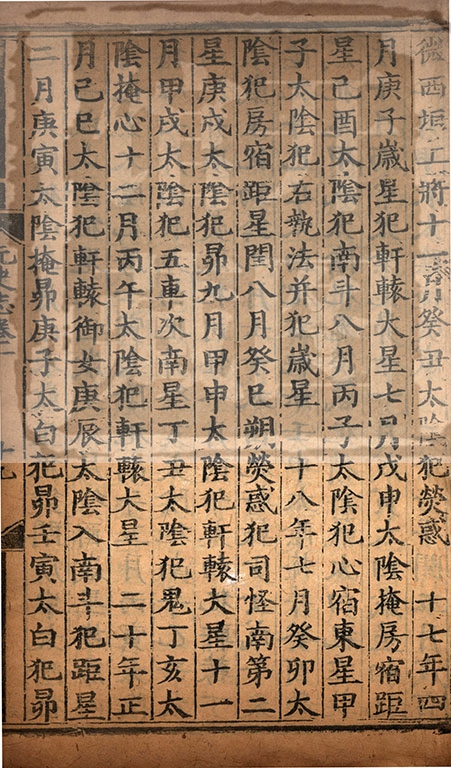 微西垣上將十一月癸丑太陰犯熒惑 十七年四
月庚子歲星犯軒轅大星七月戊申太陰掩房宿距
星己酉太陰犯南斗八月丙子太陰犯心宿東星甲
子太陰犯右執法并犯歲星 十八年七月癸卯太
陰犯房宿距星閏八月癸巳朔熒惑犯司怪南第二
星庚戌太陰犯昴九月甲申太陰犯軒轅大星十一
月甲戌太陰犯五車次南星丁丑太陰犯鬼丁亥太
陰掩心十二月丙午太陰犯軒轅大星 二十年正
月己巳太陰犯軒轅御女庚辰太陰入南斗犯距星
二月庚寅太陰掩昴庚子太白犯昴壬寅太白犯昴
元史志卷一 十九